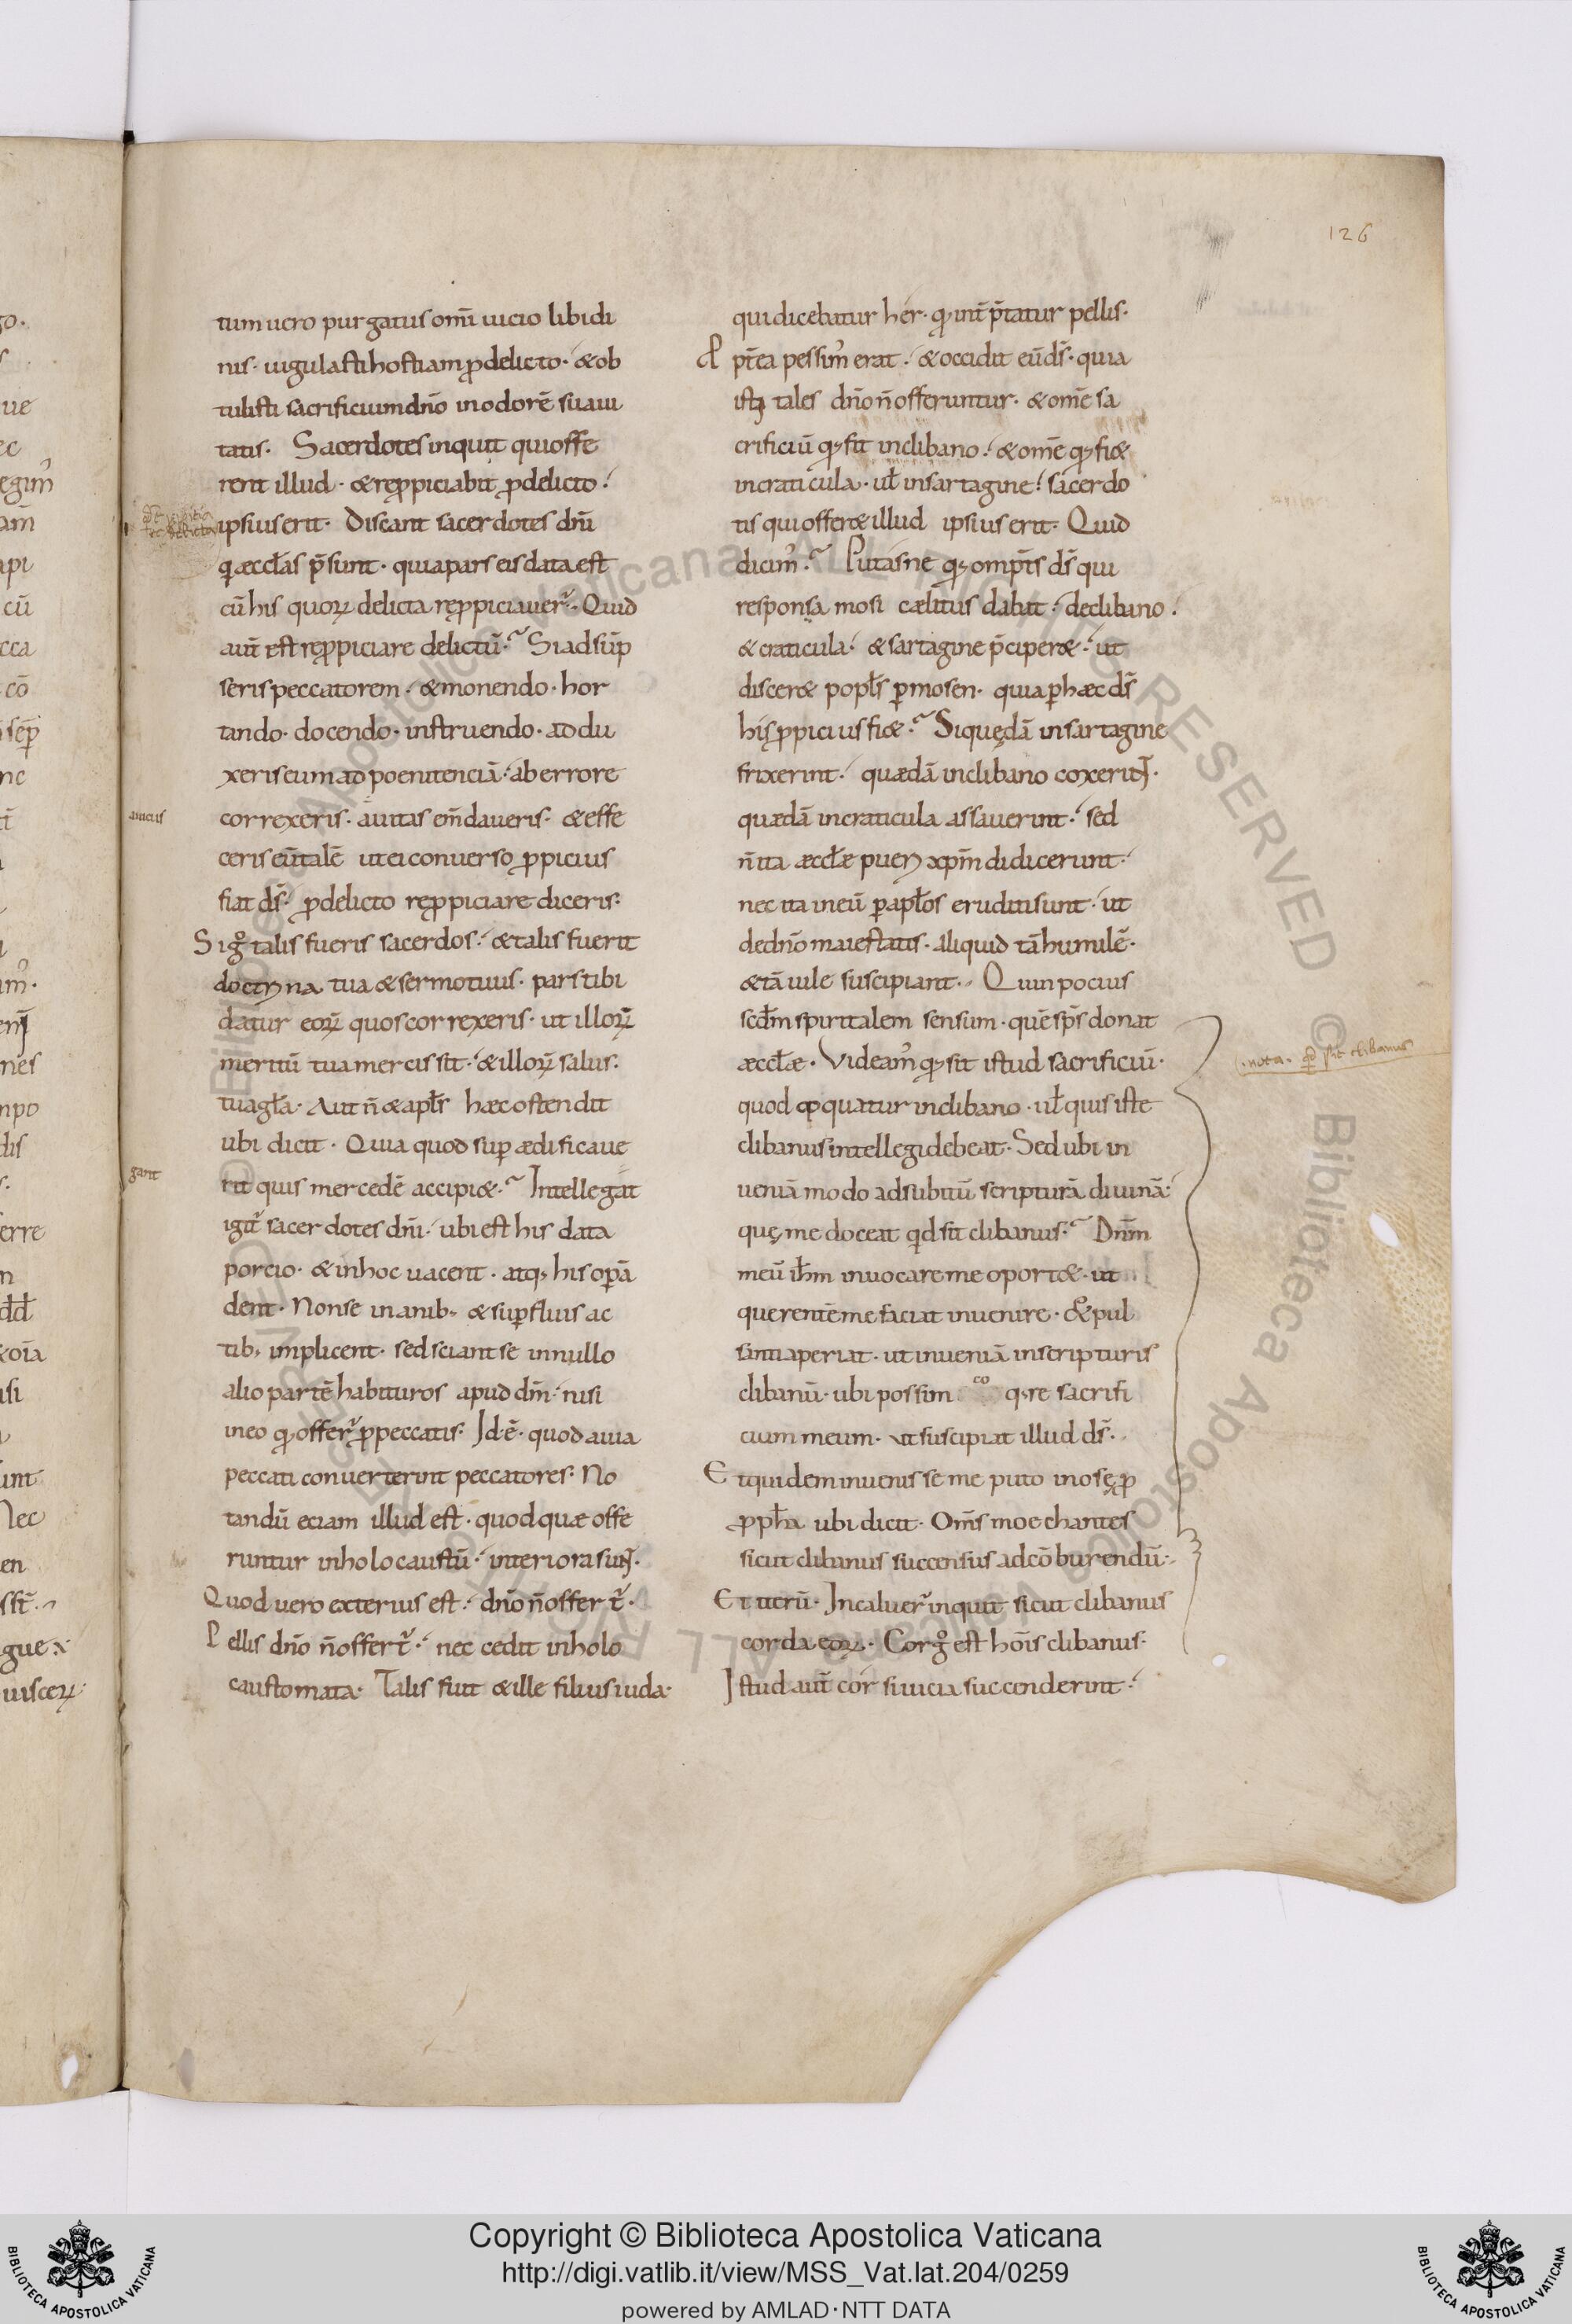 126
tum uero purgatus omī uicio libidi
nis· iugulasti hostiam ꝓ delicto· & ob
tulisti sacrificium dn̄o in odorē suaui
tatis. Sacerdotes inquit qui offe
rent illud· & reꝓpiciabit ꝓ delicto·
ipsius erit· Discant sacerdotes dn̄i
qui æccl̄as p̄sunt· quia pars eis data est
cū his quoꝝ delicta reꝓpiciauer̄· Quid
aut̄ est reꝓpiciare delictū· Si adsūp
seris peccatorem· & monendo· hor
tando· docendo· instruendo· addu
xeris eum ad poenitenciā· ab errore
auicus
correxeris· a uitis em̄daueris· & effe
ceris eū talē ut ei conuerso ꝓpicius
fiat d̄s· ꝓ delicto reꝓpiciare diceris·
Si gͦ talis fueris sacerdos· & talis fuerit
doctrina tua & sermo tuus· pars tibi
datur eoꝝ quos correxeris· ut illoꝝ
meritū tua mercis sit· & illoꝝ salus·
tua gl̄a· Aut n̄ & apl̄s hæc ostendit
ubi dicit· Quia quod suꝑ ædificaue
gant
rit quis mercedē accipi&· Intellegat
igit̄ sacerdotes dn̄i· ubi est his data
porcio· & in hoc uacent· atq; his oꝑā
dent· Non se inanib; & suꝑfluis ac
tib; implicent· sed sciant se in nullo
alio partē habituros apud dm̄· nisi
in eo qđ offer̄ ꝓ peccatis· Id·ē· quod a uia
peccati conuerterint peccatores· No
tandū eciam illud est· quod quæ offe
runtur in holocaustū· interiora sunt·
Quod uero exterius est· dn̄o n̄ offert̄·
Pellis dn̄o n̄ offert̄· nec cedit in holo
caustomata· Talis fuit & ille filius iuda·
qui dicebatur her· qđ int̄p̄tatur pellis·
ꝓpt̄ea pessim᾽ erat· & occidit eū d̄s· quia
isti tales dn̄o n̄ offeruntur· & om̄e sa
crificiū qđ fit in clibano· & om̄e qđ fi&
in craticula· ul̄ in sartagine· sacerdo
tis qui offer& illud ipsius erit· Quid
dicim᾽· Putasne qđ omp̄ts d̄s qui
responsa mosi cælitus dabat· de clibano·
& craticula· & sartagine p̄ciper&· ut
discer& popl̄s ꝑ mosen· quia ꝑ hæc d̄s
his ꝓpicius fi&· Si quędā in sartagine
frixerint· quædā in clibano coxerint·
quædā in craticula assauerint· sed
n̄ ita æccl̄æ pueri xp̄m didicerunt·
nec ita in eū ꝑ apl̄os eruditi sunt· ut
de dn̄o maiestatis· aliquid tā humilē·
& tā uile suscipiant· Quin pocius
scd̄m spiritalem sensum· quē sp̄s donat
æccl̄æ· Videam᾽ qđ sit istud sacrificiū·
nota· qđ sit clibanus
quod coquatur in clibano· ul̄ quis iste
clibanus intellegi debeat· Sed ubi in
ueniā modo ad subitū scripturā diuinā·
quę me doceat qd sit clibanus· Dn̄m
meū ih̄m inuocare me oport&· ut
querentē me faciat inuenire· & pul
santi aperiat· ut inueniā in scripturis
clibanū· ubi possim coq;re sacrifi
cium meum· ut suscipiat illud d̄s·
Et quidem inuenisse me puto in osę ꝓ
ꝓph̄a ubi dicit· Om̄s moechantes
sicut clibanus succensus ad cōburendū·
Et iterū· Incaluer̄ inquit sicut clibanus
corda eoꝝ· Cor gͦ est hōis clibanus·
Istud aut̄ cor si uicia succenderint·
Copyright © Biblioteca Apostolica Vaticana
http://digi.vatlib.it/view/MSS_Vat.lat.204/0259
powered by AMLAD·NTT DATA